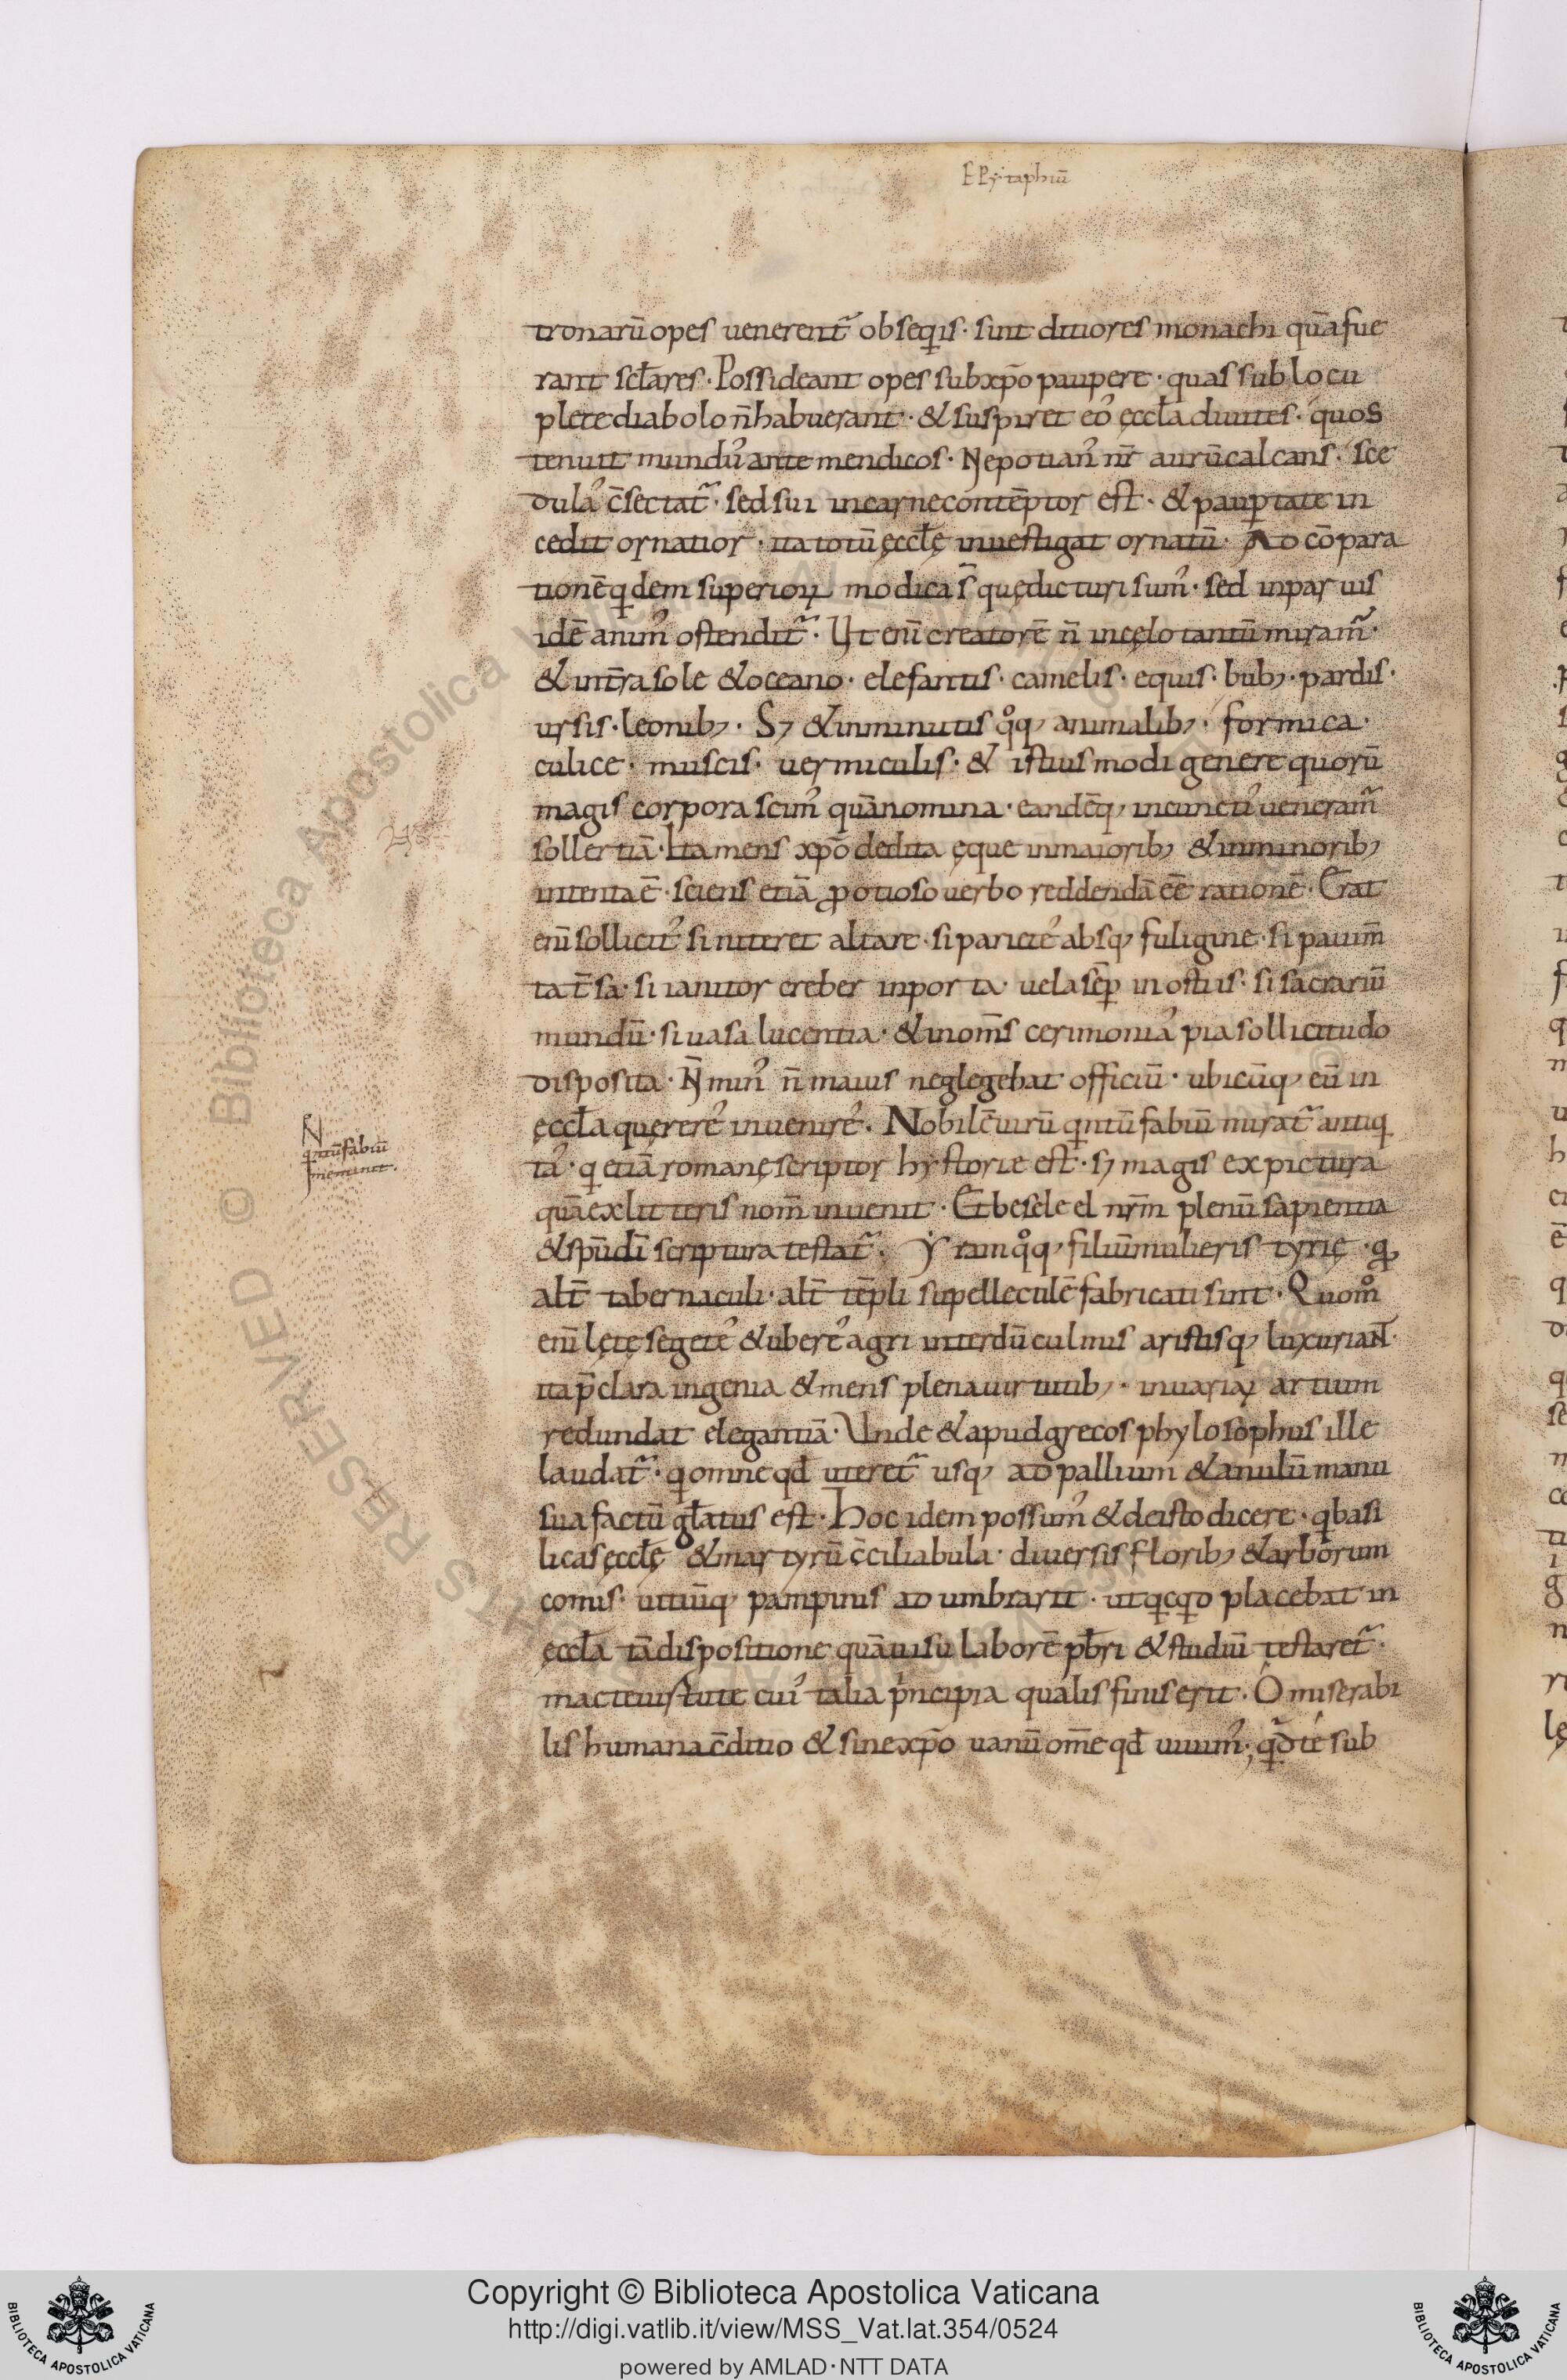 EPẏtaphiū
tronarū opes uenerent᷑ obseq̇is · sint ditiores monachi quā fue
rant scl̄ares · Possideant opes sub xp̄o paupere · quas sub locu
plete diabolo n̄ habuerant · & suspiret eos᾽ ęccl̄a diuites · quos
tenuit mund᾽ ante mendicos · Nepotian᾽ nr̄ aurū calcans · sce
dulas᾽ c̄sectat᷑ · sed sui in carne contēptor est · & paup̱tate in
cedit ornatior · ita totū ęccl̄ę inuestigat ornatū · Ad cōpara
tionē qdem superioꝝ modica s̄ quę dicturi sum᾽ · sed in paruis
idē anim᾽ ostendit᷑ · Ut eni̅ creatorē n̄ in cęlo tantū miram᷑ ·
& int̄ra sole & oceano · elefantis · camelis · equis · bubꝫ · pardis ·
ursis · leonibꝫ · Sꝫ & in minutis qͦqꝫ animalibꝫ · formica ·
culice · muscis · uermiculis · & istius modi genere quorū
magis corpora scim᾽ quā nomina · eandēqꝫ in cunctis᾽ ueneram᷑
sollertiā · Ita mens xp̄o dedita ęque in maioribꝫ & in minoribꝫ
intenta ē · sciens etiā ꝓ otioso uerbo reddendā eē rationē · Erat
eni̅ sollicit᾽ si niteret altare · si pariete᾽ absqꝫ fuligine · si pauim̄
ta t̄sa · si ianitor creber in porta · uela sēp in ostiis · si sacrariū
mundū · si uasa lucentia · & in om̄s cerimonia᾽ pia sollicitudo
disposita · N̄ min᾽ n̄ maius neglegebat officiū · ubicūqꝫ eū in
ęccl̄a quęrere᾽ inuenire᾽ · Nobilē uirū qintū fabiū mirat᷑ antiq
ta᾽ · q etiā romanę scriptor hẏstorie est · sꝫ magis ex pictura
quā ex litteris nom̄ inuenit · Et beseleel nrm̄ plenū sapientia
& spū di̅ scriptura testat᷑ · Ẏramqͦqꝫ filiū mulieris tyrię · q
alt̄ tabernaculi · alt̄ tēpli supellectilē fabricati sunt · Quom̊
eni̅ lętę segete᾽ & ubere᾽ agri interdū culmis aristisqꝫ luxuriant̄ ·
ita p̄clara ingenia & mens plena uirtutibꝫ · in uariaꝝ artium
redundat elegantiā · Unde & apud grecos phylosophus ille
laudat᷑ · q omne qd̄ uteret᷑ usqꝫ ad pallium & anulū manu
sua factū gl̄atus est · Hoc idem possum᾽ & de isto dicere · q basi
licas ęccl̄ę & martyrū c̄ciliabula · diuersis floribꝫ & arborum
comis · uitiūqꝫ pampinis adumbrarit · ut qcqd placebat in
ęccl̄a tā dispositione quā uisu laborē pb̄ri & studiū testaret᷑ ·
macte uirtute cui᾽ talia p̍ncipia qualis finis erit · O miserabi
lis humana c̄ditio & sine xp̄o uanū om̄e qd̄ uiuim᾽ ·
N̄
qintū fabiū
meminit ·
Copyright © Biblioteca Apostolica Vaticana
http://digi.vatlib.it/view/MSS_Vat.lat.354/0524
powered by AMLAD·NTT DATA
BIBLIOTECA APOSTOLICA VATICANA
BIBLIOTECA APOSTOLICA VATICANA